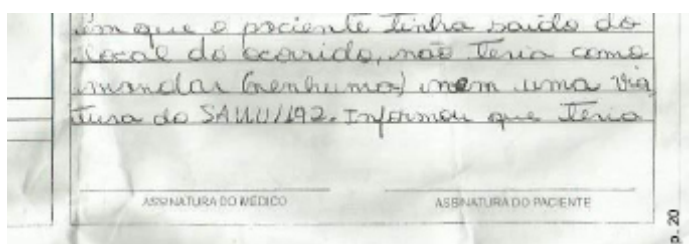 em que o paciente tinha saído do
local do ocorrido, não teria como
mandar (nenhuma) nem uma via
tura do SAMU/192. Informou que teria
ASSINATURA DO MÉDICO
ASSINATURA DO PACIENTE
p. 20